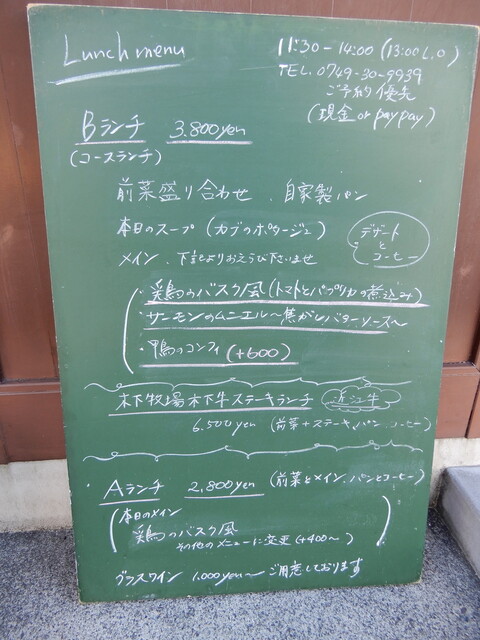 Lunch menu
11:30-14:00 (13:00 L.O)
TEL. 0749-30-9939
ご予約優先
(現金 or paypay)
Bランチ 3,800yen
(コースランチ)
前菜盛り合わせ、自家製パン
本日のスープ (カブのポタージュ)
デザート
と
コーヒー
メイン、下記よりおえらび下さいませ
・鶏のバスク風 (トマトとパプリカの煮込み)
・サーモンのムニエル〜焦がしバターソース〜
・鴨のコンフィ (+600)
木下牧場木下牛ステーキランチ 近江牛
6,500yen (前菜+ステーキ、パン、コーヒー)
Aランチ 2,800yen (前菜とメイン、パンとコーヒー)
本日のメイン
鶏のバスク風
その他のメニューに変更 (+400〜)
グラスワイン 1,000yen〜ご用意しております